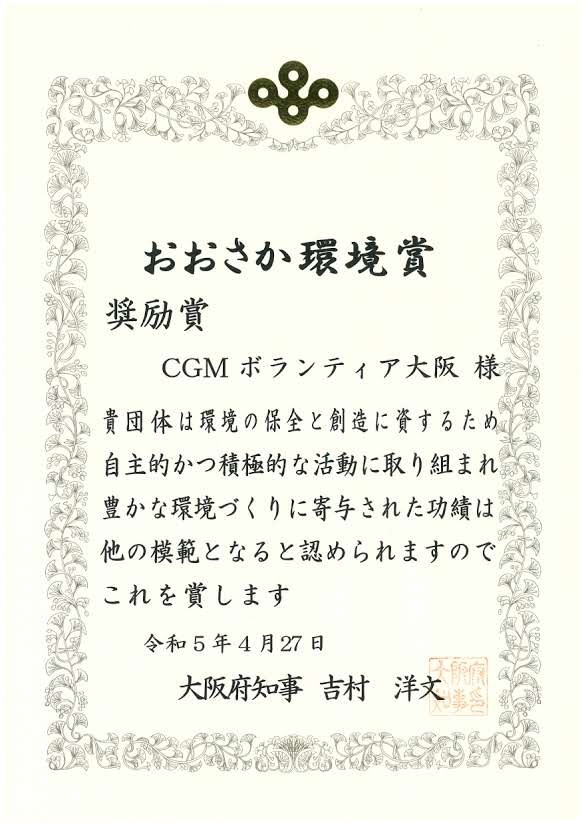 おおさか環境賞
奨励賞
CGM ボランティア大阪 様
貴団体は環境の保全と創造に資するため
自主的かつ積極的な活動に取り組まれ
豊かな環境づくりに寄与された功績は
他の模範となると認められますので
これを賞します
令和5年4月27日
大阪府知事 吉村 洋文
大阪府
知事印